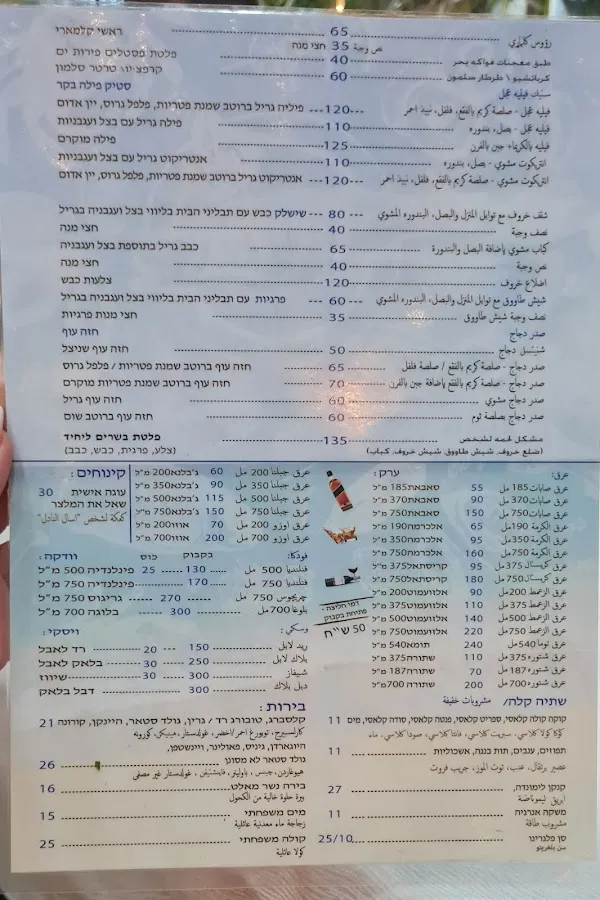 ראשי קלמארי 65 رؤوس كلماري
חצי מנה 35 نص وجبة
פלטת פסטלים פירות ים 40 طبق معجنات فواكه بحر
קרפצ׳יו\ טרטר סלמון 60 كرباتشيو \ طرطار سلمون
סטייק פילה בקר ستيك فيليه عجل
פיליה גריל ברוטב שמנת פטריות, פלפל גרוס, יין אדום 120 فيليه عجل - صلصة كريم بالفقع، فلفل، نبيذ احمر
פילה גריל עם בצל ועגבניות 110 فيليه عجل - بصل، بندوره
פילה מוקרם 125 فيليه بالكريما+ جبن بالفرن
אנטריקוט גריל עם בצל ועגבניות 110 انتريكوت مشوي - بصل، بندوره
אנטריקוט גריל ברוטב שמנת פטריות, פלפל גרוס, יין אדום 120 انتريكوت مشوي - صلصة كريم بالفقع، فلفل، نبيذ احمر
שישליק כבש עם תבליני הבית בליווי בצל ועגבניה בגריל 80 شقف خروف مع توابل المنزل والبصل، البندوره المشوي
חצי מנה 40 نصف وجبة
כבב גריל בתוספת בצל ועגבניה 65 كباب مشوي بإضافة البصل والبندورة
חצי מנה 40 نص وجبة
צלעות כבש 120 اضلاع خروف
פרגיות עם תבליני הבית בליווי בצל ועגבניה בגריל 60 شيش طاووق مع توابل المنزل والبصل، البندوره المشوي
חצי מנות פרגיות 35 نصف وجبة شيش طاووق
חזה עוף صدر دجاج
חזה עוף שניצל 50 شنيتسل دجاج
חזה עוף ברוטב שמנת פטריות / פלפל גרוס 65 صدر دجاج - صلصة كريم بالفقع / صلصة فلفل
חזה עוף ברוטב שמנת פטריות מוקרם 70 صدر دجاج - صلصة كريم بالفقع بإضافة جبن بالفرن
חזה עוף גריל 60 صدر دجاج مشوي
חזה עוף ברוטב שום 60 صدر دجاج بصلصة ثوم
פלטת בשרים ליחיד 135 مشكل لحمه لشخص
(צלע, פרגית, כבש, כבב) (ضلع خروف، شيش طاووق، شيش خروف، كباب)
ערק: عرق:
סאבאת185 מ"ל 55 عرق صابات185 مل
סאבאת370 מ"ל 90 عرق صابات370 مل
סאבאת750 מ"ל 150 عرق صابات750 مل
אלכרמה190 מ"ל 65 عرق الكرمة 190مل
אלכרמה350 מ"ל 95 عرق الكرمة 350مل
אלכרמה750 מ"ל 160 عرق الكرمة 750مل
קריסתאל375 מ"ל 95 عرق كريستال 375 مل
קריסתאל750 מ"ל 180 عرق كريستال 750 مل
אלזעמוט200 מ"ל 90 عرق الزعمط 200مل
אלזעמוט375 מ"ל 110 عرق الزعمط 375 مل
אלזעמוט500 מ"ל 140 عرق الزعمط 500 مل
אלזעמוט750 מ"ל 220 عرق الزعمط 750 مل
תומא540 מ"ל 240 عرق توما 540مل
שתורה375 מ"ל 110 عرق شتوره 375مل
שתורה187 מ"ל 70 عرق شتوره 187مل
שתורה700 מ"ל 200 عرق شتوره 700مل
ג׳בלנא200 מ"ל 60 عرق جبلنا 200 مل
ג׳בלנא350 מ"ל 90 عرق جبلنا 350 مل
ג׳בלנא500 מ"ל 115 عرق جبلنا 500 مل
ג׳בלנא750 מ"ל 150 عرق جبلنا 750 مل
אוזו200 מ"ל 70 عرق اوزو 200 مل
אוזו700 מ"ל 200 عرق اوزو 700 مل
קינוחים:
עוגה אישית 30
שאל את המלצר
كعكة لشخص "اسأل النادل"
דמי חליצה -
פתיחת בקבוק
50 ש״ח
וודקה: כוס בקבוק فودكا:
פינלנדיה 500 מ"ל 25 130 فنلنديا 500 مل
פינלנדיה 750 מ"ל 170 فنلنديا 750 مل
גריגוס 750 מ"ל 270 جريجوس 750 مل
בלוגה 700 מ"ל 300 بلوغا 700 مل
ויסקי: وسكي:
רד לאבל 20 150 ريد لابل
בלאק לאבל 30 250 بلاك لابل
שיווז 30 300 شيفاز
דבל בלאק 300 دبل بلاك
בירות:
קלסברג, טובורג רד / גרין, גולד סטאר, היינקן, קורונה 21
كارلسبيرج، توبورغ احمر/اخضر، غولدستار، هينيكن، كورونه
הייגארדן, גיניס, פאולינר, ויינשטפן,
גולד סטאר לא מסונן 26
هيوغاردن، جينس، باولينر، فاينشتيفن، غولدستار غير مصفى
בירה נשר מאלט 16
بيرة حلوة خالية من الكحول
מים משפחתי 15
زجاجة ماء معدنية عائلية
קולה משפחתי 25
كولا عائلية
שתיה קלה/ مشروبات خفيفة
קוקה קולה קלאסי, ספרייט קלאסי, פנטה קלאסי, סודה קלאסי, מים 11
كوكا كولا كلاسي، سبريت كلاسي، فانتا كلاسي، صودا كلاسي، ماء
תפוזים, ענבים, תות בננה, אשכוליות 11
عصير برتقال، عنب، توت الموز، جريب فروت
קנקן לימונדה, 27
ابريق ليموناضة
משקה אנרגיה 11
مشروب طاقة
סן פלגרינו 25/10
سن بلغرينو